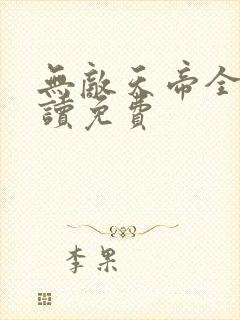 無敵天帝全
讀免費
李果